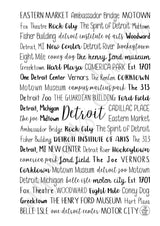 EASTERN MARKET Ambassador Bridge MOTOWN
Fisher Theatre Rock City The Spirit of Detroit Midtown
Fisher Building detroit institute of arts Woodward
Detroit, MI NEW Center Detroit River hockeytown
Eight Mile Cony Dog the henry ford museum
Greektown Hart Plaza COMERICA PARK Est. 1701
One Detroit Center Vernors The Rencen CORKTOWN
Motown Museum campus martius park The 313
Detroit Zoo THE GUARDIAN BUILDING Ford Field
Detroit, Michigan
Detroit
CADILLAC PLACE
the joe
Motown Eastern Market
Ambassador Bridge Rock City The Spirit of Detroit
Fisher Building DETROIT INSTITUTE OF ARTS The 313
Detroit, MI NEW CENTER Detroit River Hockeytown
comerica park ford field The Joe VERNORS
Corktown Motown museum detroit zoo Midtown
Detroit, Michigan belle isle Est. 1701
Fox Theatre WOODWARD Eight Mile Coney Dog
Greektown THE HENRY FORD MUSEUM Hart Plaza
BELLE ISLE one detroit center MOTOR CITY